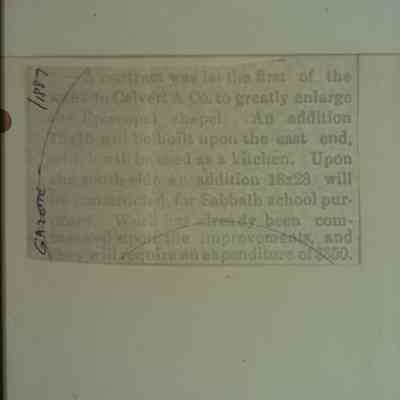 GAZETTE — /1887
A contract was let the first of the
to Calvert & Co. to greatly enlarge
the Episcopal chapel. An addition
will be built upon the east end,
will be used as a kitchen. Upon
the south side an addition 18x28 will
be constructed, for Sabbath school pur-
poses. Work has already been com-
menced upon the improvements, and
they will require an expenditure of $800.